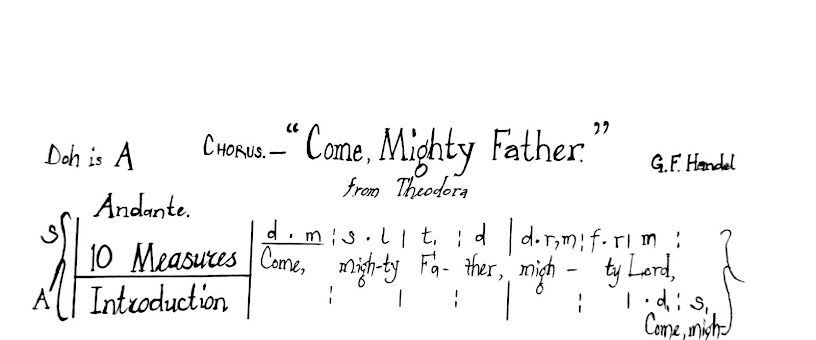 Doh is A CHORUS.– “Come, Mighty Father.” G.F. Handel
from Theodora
Andante.
S 10 Measures d . m : s . l | t, : d | d.r,m : f . r | m :
Come, migh-ty Fa- ther, migh - ty Lord,
A Introduction : | : | : | . d, : s,
Come, migh-